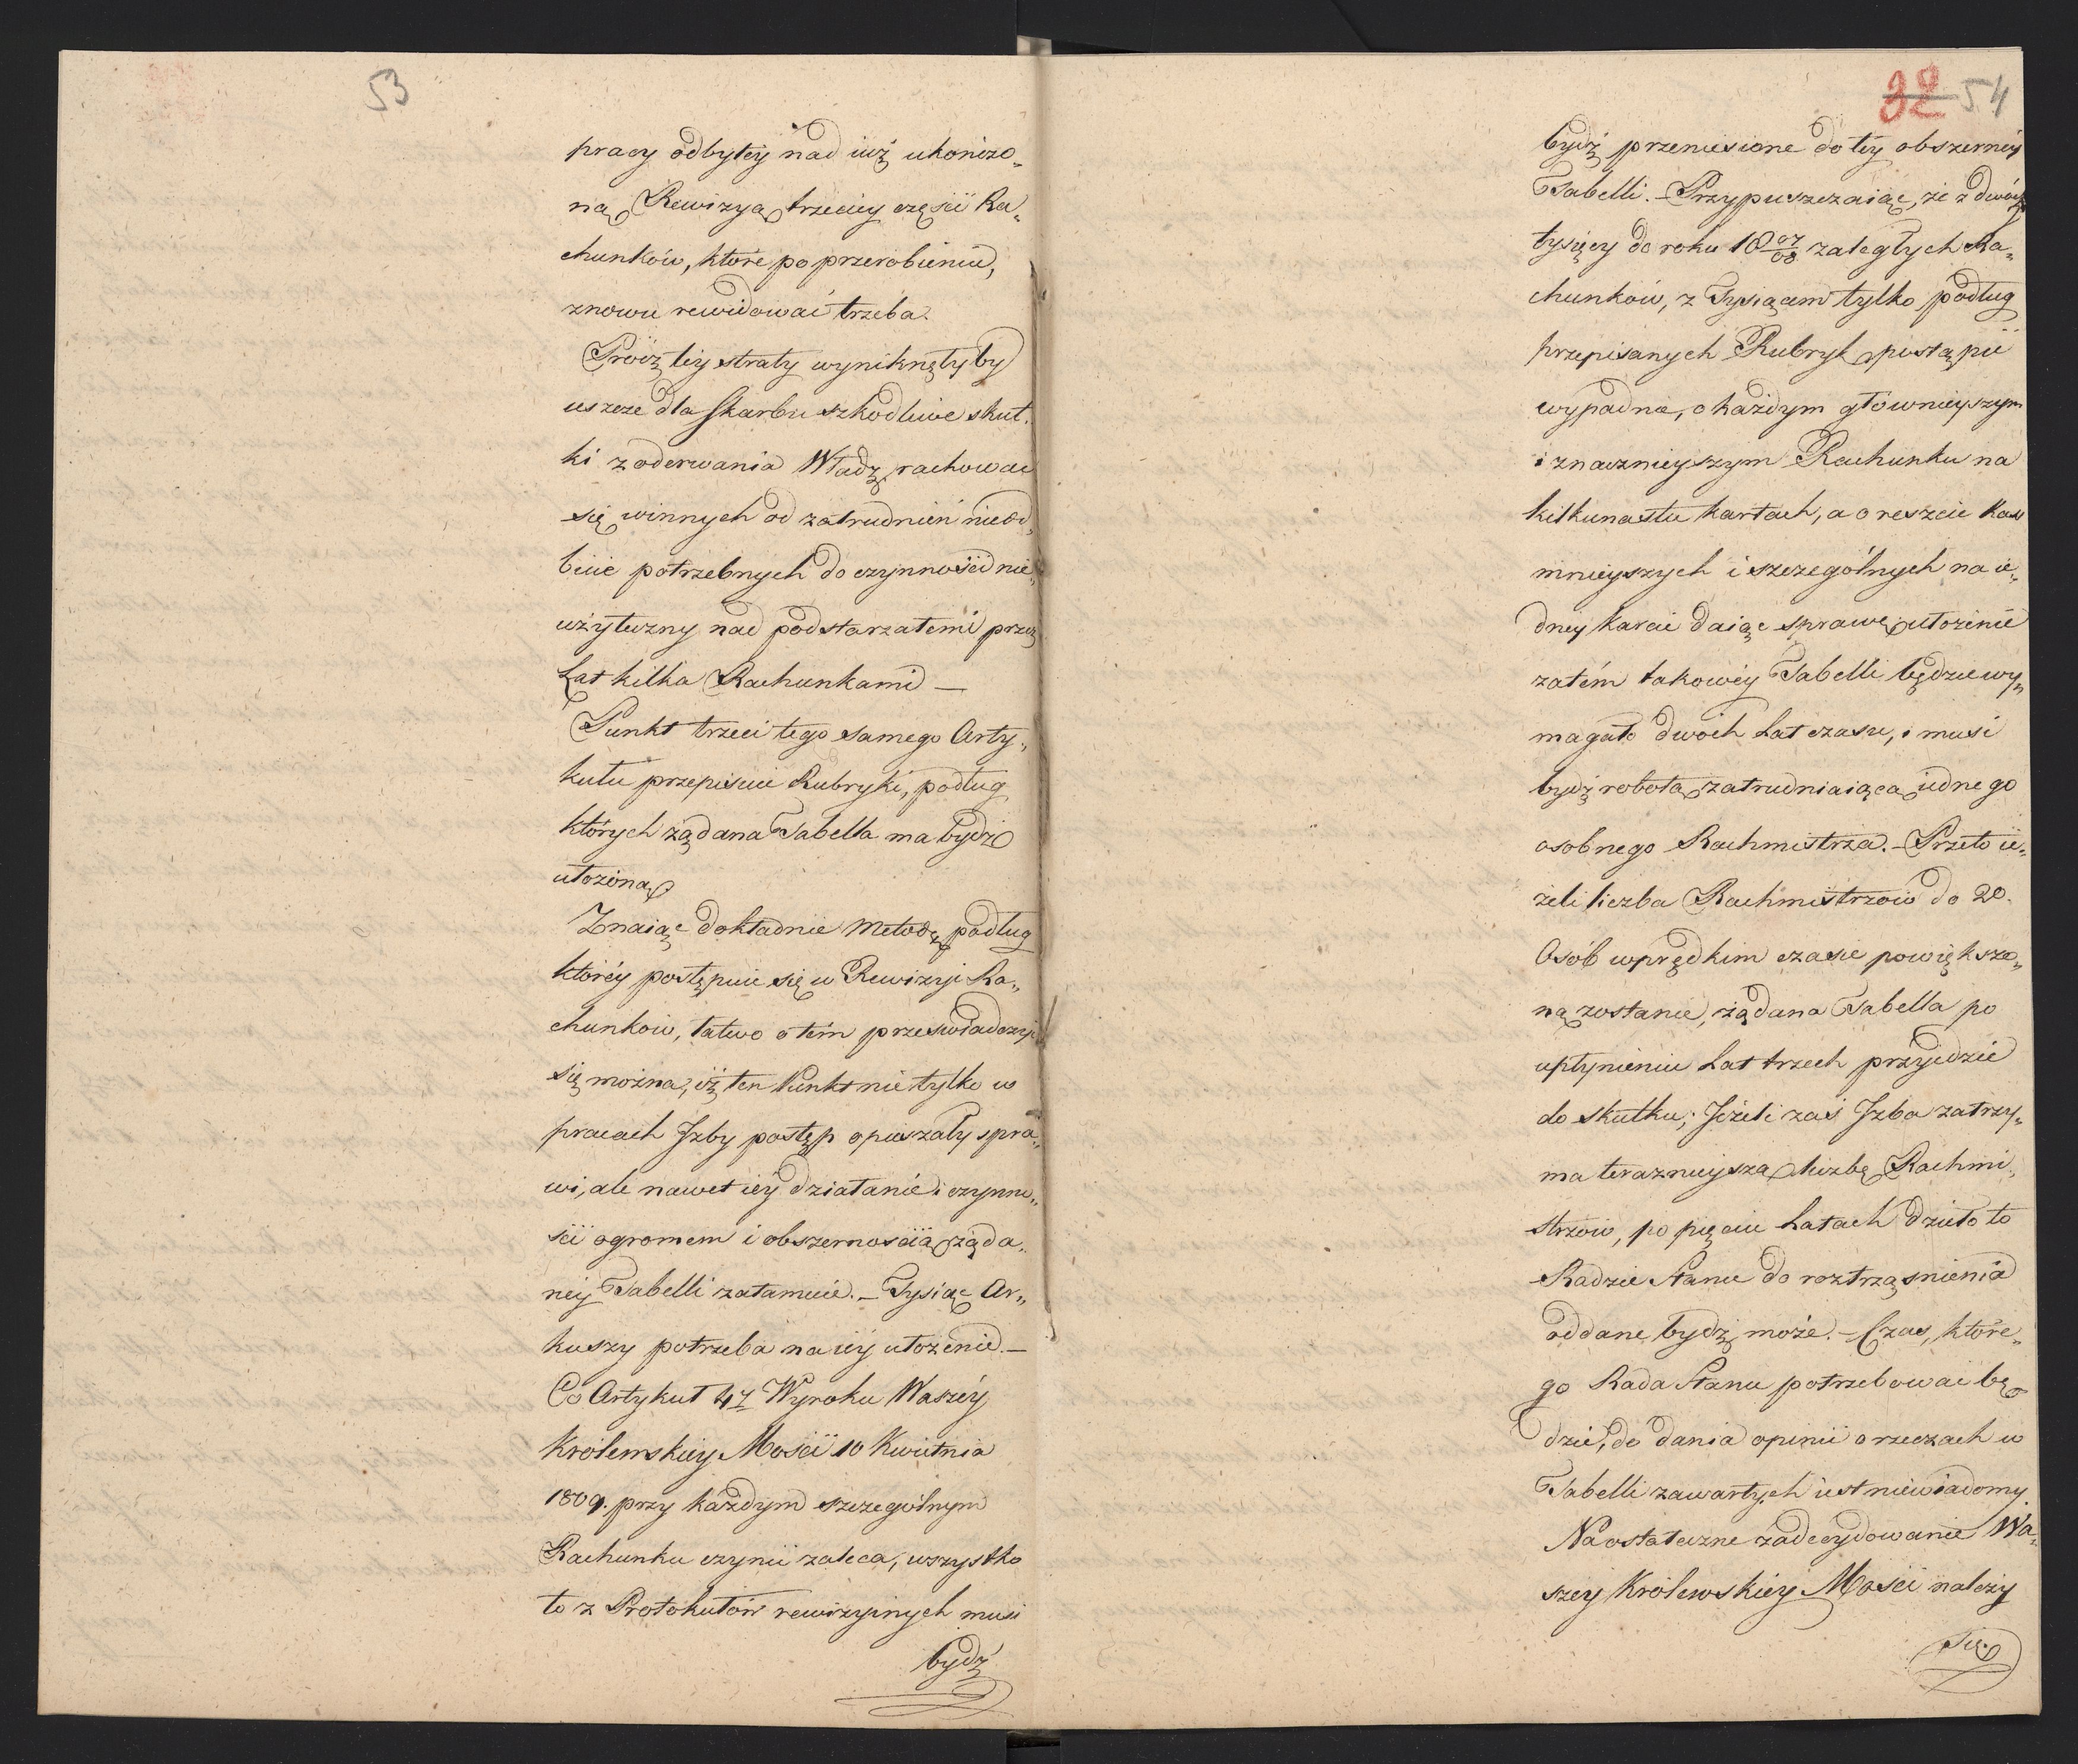 53
pracy odbytey nad iuż ukończo„
ną Rewizyą trzeciey częsci Ra„
chunków, które po przerobieniu,
znowu rewidować trzeba.
Prócz tey straty wyniknęłyby
ieszcze dla skarbu szkodliwe skut„
ki z oderwania Władz, rachować
się winnych od zatrudnień nieod„
bicie potrzebnych do czynności nie„
użyteczny nad podstarzałemi przez
Lat kilka Rachunkami —
Punkt trzeci tego samego Arty„
kułu przepisuie Rubryki, podług
których żądana Tabella ma bydź
ułożoną
Znaiąc dokładnie Metodę podług
któréy postępuie się w Rewizyi Ra„
chunków, łatwo o tém przeswiadczyć
się można, iż ten Punkt nie tylko w
pracach Izby postęp opieszały spra„
wi, ale nawet iéy działanie i czynno„
ści ogromem i obszernością żąda„
néy Tabelli zatamuie. — Tysiąc Ar„
kuszy potrzeba na iéy ułożenie. —
Co Artykuł 47 Wyroku Waszéy
Królewskiey Mości 10 Kwietnia
1809. przy każdym szczególnym
Rachunku czynić zaleca, wszystko
to z Protokułów rewizyinych musi
bydź
32 54
bydź przeniesione do tey obszerney
Tabelli. — Przypuszczaiąc, że z dwóch
tysięcy do roku 18 07/08 zaległych Ra„
chunków, z Tysiącem tylko podług
przepisanych Rubryk postąpić
wypadnie, o każdym główneyszym
i znaczneyszym Rachunku na
kilkunastu kartach, a o reszcie Kass
mnieyszych i szczególnych na ie„
dney karcie daiąc sprawę, ułożenie
zatém takowéy Tabelli będzie wy„
magało dwóch Lat czasu, i musi
bydź robotą zatrudniaiącą iednego
osobnego Rachmistrza. — Przeto ie„
żeli liczba Rachmistrzów do 20.
Osób w prędkim czasie powiększo„
ną zostanie, żądana Tabella po
upłynieniu Lat trzech przyidzie
do skutku; Jeżeli zaś Izba zatrzy„
ma teraznieyszą liczbę Rachmi„
strzów, po pięciu Latach dzieło to
Radzie Stanu do roztrząsnienia
oddane bydź może. — Czas, które„
go Rada Stanu potrzebować bę„
dzie, do dania opinii o rzeczach w
Tabelli zawartych iest niewiadomy.
Na ostateczne zadecydowanie Wa„
szey Królewskiey Mości należy